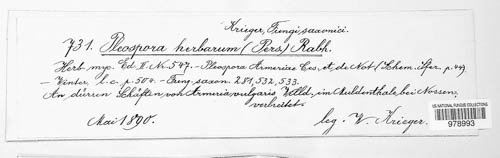 Krieger, Fungi saxonici.
731. Pleospora herbarum (Pers) Rabh.
Herb. myc. Ed. II No. 547. – Pleospora Armeriae Ces. et de Not (Schem. Sfer. p. 44)
Winter, l. c. p. 504. – Fung. saxon. 281, 532, 533.
An dürren Schäften von Armeria vulgaris Willd. im Muldenthale bei Nossen,
verbreitet.
Mai 1890.
leg. W. Krieger.
US NATIONAL FUNGUS COLLECTIONS
978993